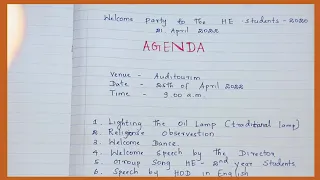 Welcome Party to The HE students - 2020
21 April 2022
AGENDA
Venue - Auditourim
Date - 26th of April 2022
Time - 9.00 a.m.
1. Lighting The Oil Lamp (traditional lamp)
2. Religeose Observestion
3. Welcome Dance.
4. Welcome Speech by The Director
5. Group Song HE- 2nd year Students
6. Speech by HOD in English